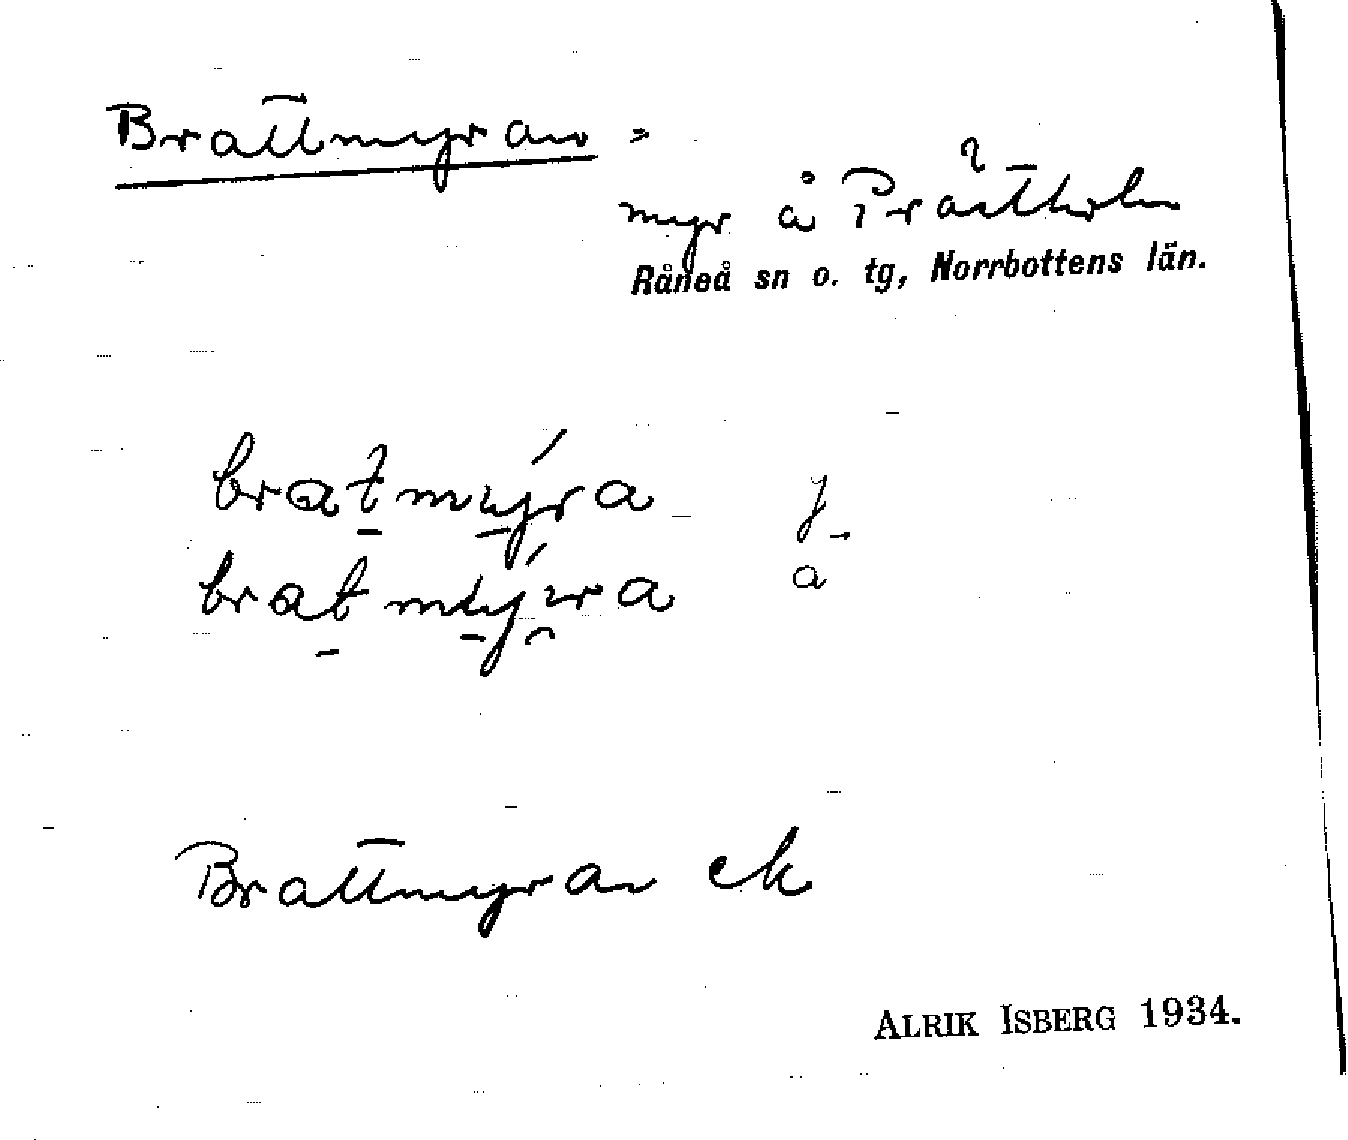 Brattmyran =
myr å Prästholm
Råneå sn o. tg, Norrbottens län.
bratmy̆́ra f.
bratmy̆́ra a
Brattmyran ek
ALRIK ISBERG 1934.